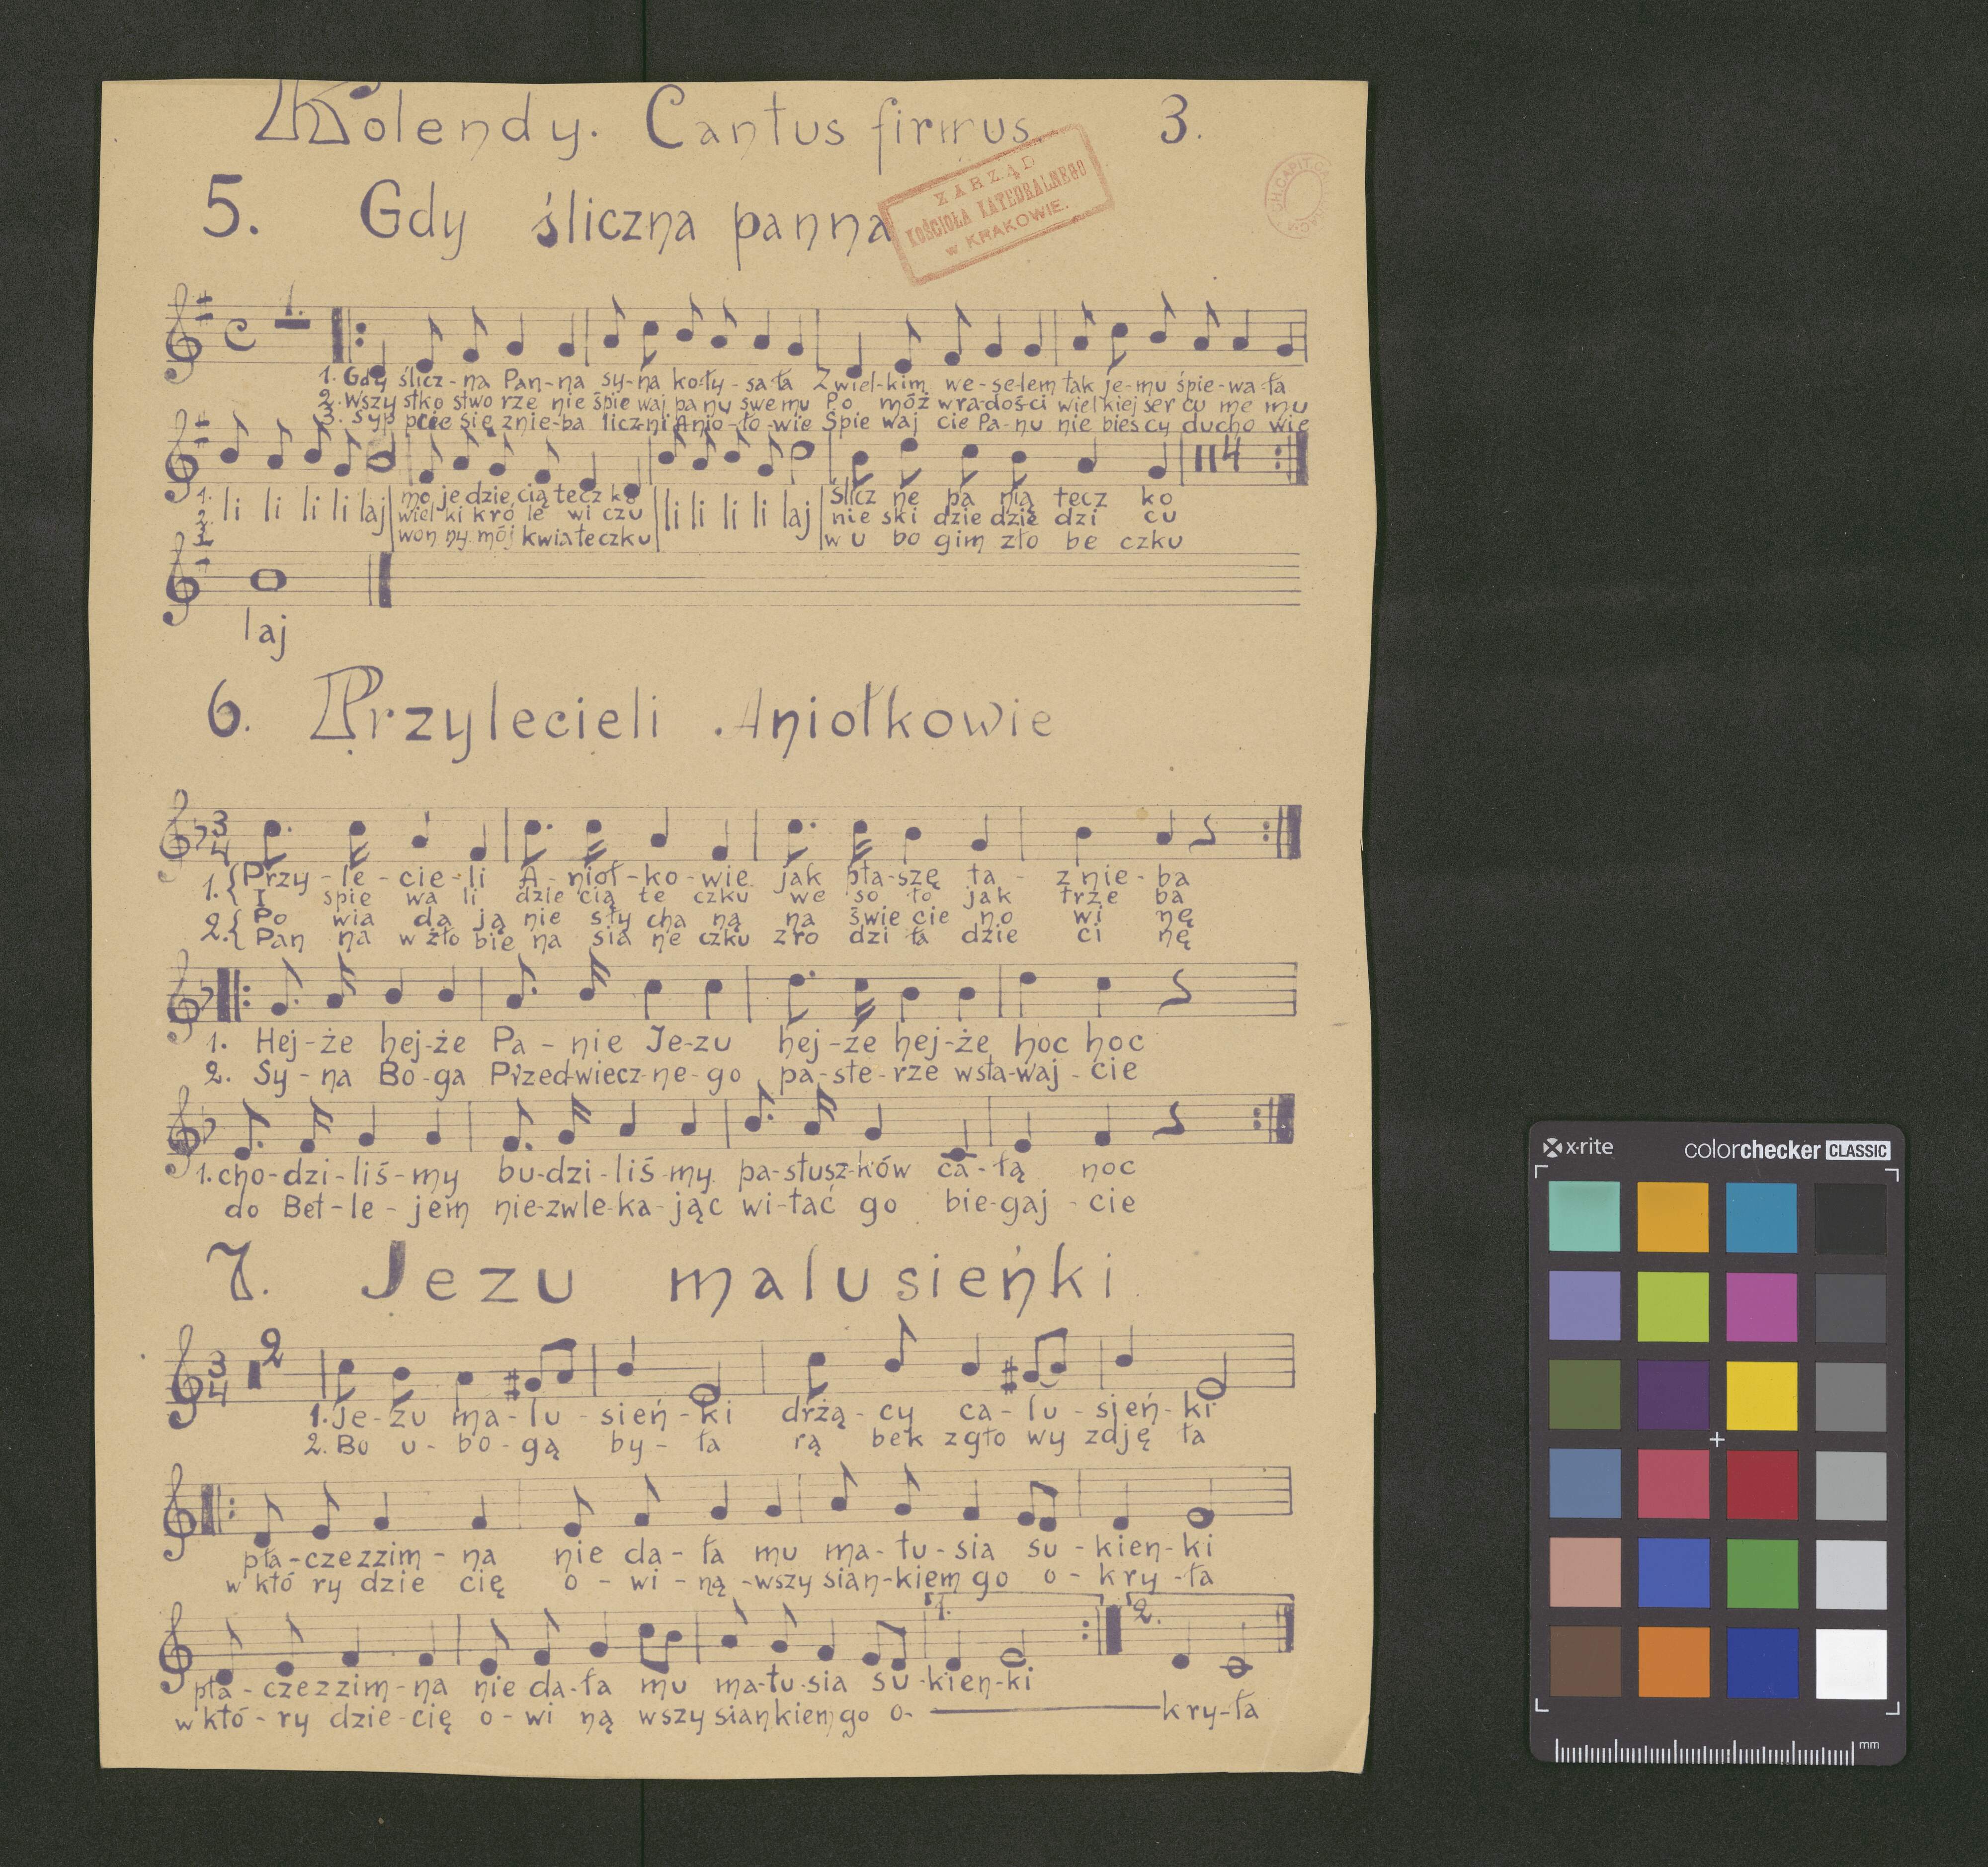 Kolendy. Cantus firmus 3.
ZARZĄD
KOŚCIOŁA KATEDRALNEGO
w KRAKOWIE.
5. Gdy śliczna panna
1.
1. Gdy ślicz-na Pan-na sy-na ko-ły-sa-ła Z wiel-kim we-se-lem tak je-mu śpie-wa-ła
2. Wszy stko stwo rze nie śpie waj pa nu swe mu Po móż w ra-doś-ci wiel kiej ser cu me mu
3. Syp pcie się z nie-ba licz-ni Anio-ło-wie Śpie waj cie Pa-nu nie bies cy ducho wie
4
1. li li li li laj mo je dzie cią tecz ko li li li li laj ślicz ne pa nią tecz ko
2. wiel ki kró le wi czu nie ski dzie dzie dzi cu
3. won ny mój kwia teczku w u bo gim zło be czku
laj
6. Przylecieli Aniołkowie
3
4
1. { Przy-le-cie-li A-nioł-ko-wie jak pta-szę ta- z nie-ba
I spie wa li dzie cią te czku we so ło jak trze ba
2. { Po wia da ją nie sły cha ną na świe cie no wi nę
Pan na w żło bie na sia ne czku zro dzi ła dzie ci nę
1. Hej-że hej-że Pa-nie Je-zu hej-że hej-że hoc hoc
2. Sy-na Bo-ga Przed-wiecz-ne-go pa-ste-rze wsta-waj-cie
1. cho-dzi-liś-my bu-dzi-liś-my pa-stusz-ków ca-łą noc
do Bet-le-jem nie-zwle-ka-jąc wi-tać go bie-gaj-cie
7. Jezu malusieńki
3
4
2
1. Je-zu ma-lu-sień-ki drżą-cy ca-lu-sień-ki
2. Bo u-bo-gą by-ła rą bek z gło wy zdję ła
pła-cze z zim-na nie da-ła mu ma-tu-sia su-kien-ki
w któ ry dzie cię o-wi-ną-wszy sian-kiem go o-kry-ła
1. 2.
pła-cze z zim-na nie da-ła mu ma-tu-sia su-kien-ki
w któ-ry dzie-cię o-wi ną wszy siankiem go o- kry-ła
x-rite colorchecker CLASSIC
mm